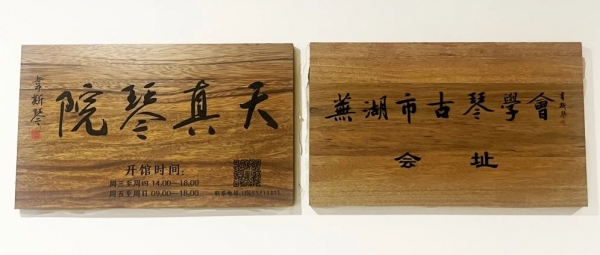 天真琴院
韋斯琴
开馆时间:
周三至周四 14:00—18:00
周五至周日 09:00—18:00
蕪湖市古琴學會
会址